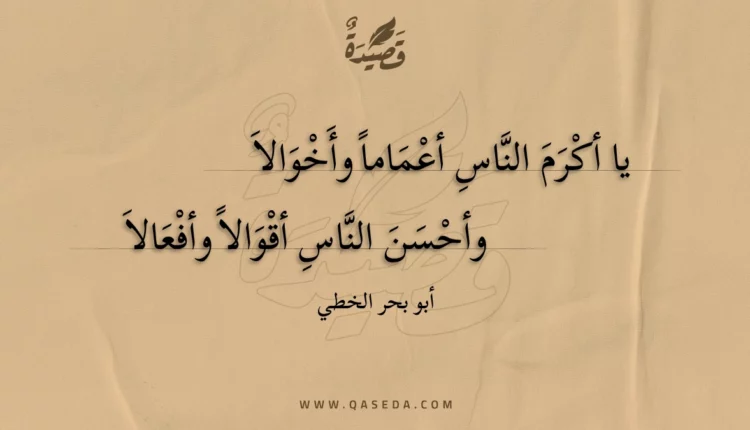 قَصِيدَةٌ
يا أكْرَمَ النَّاسِ أعْمَاماً وأَخْوَالاَ
وأحْسَنَ النَّاسِ أقْوَالاً وأفْعَالاَ
أبو بحر الخطي
WWW.QASEDA.COM